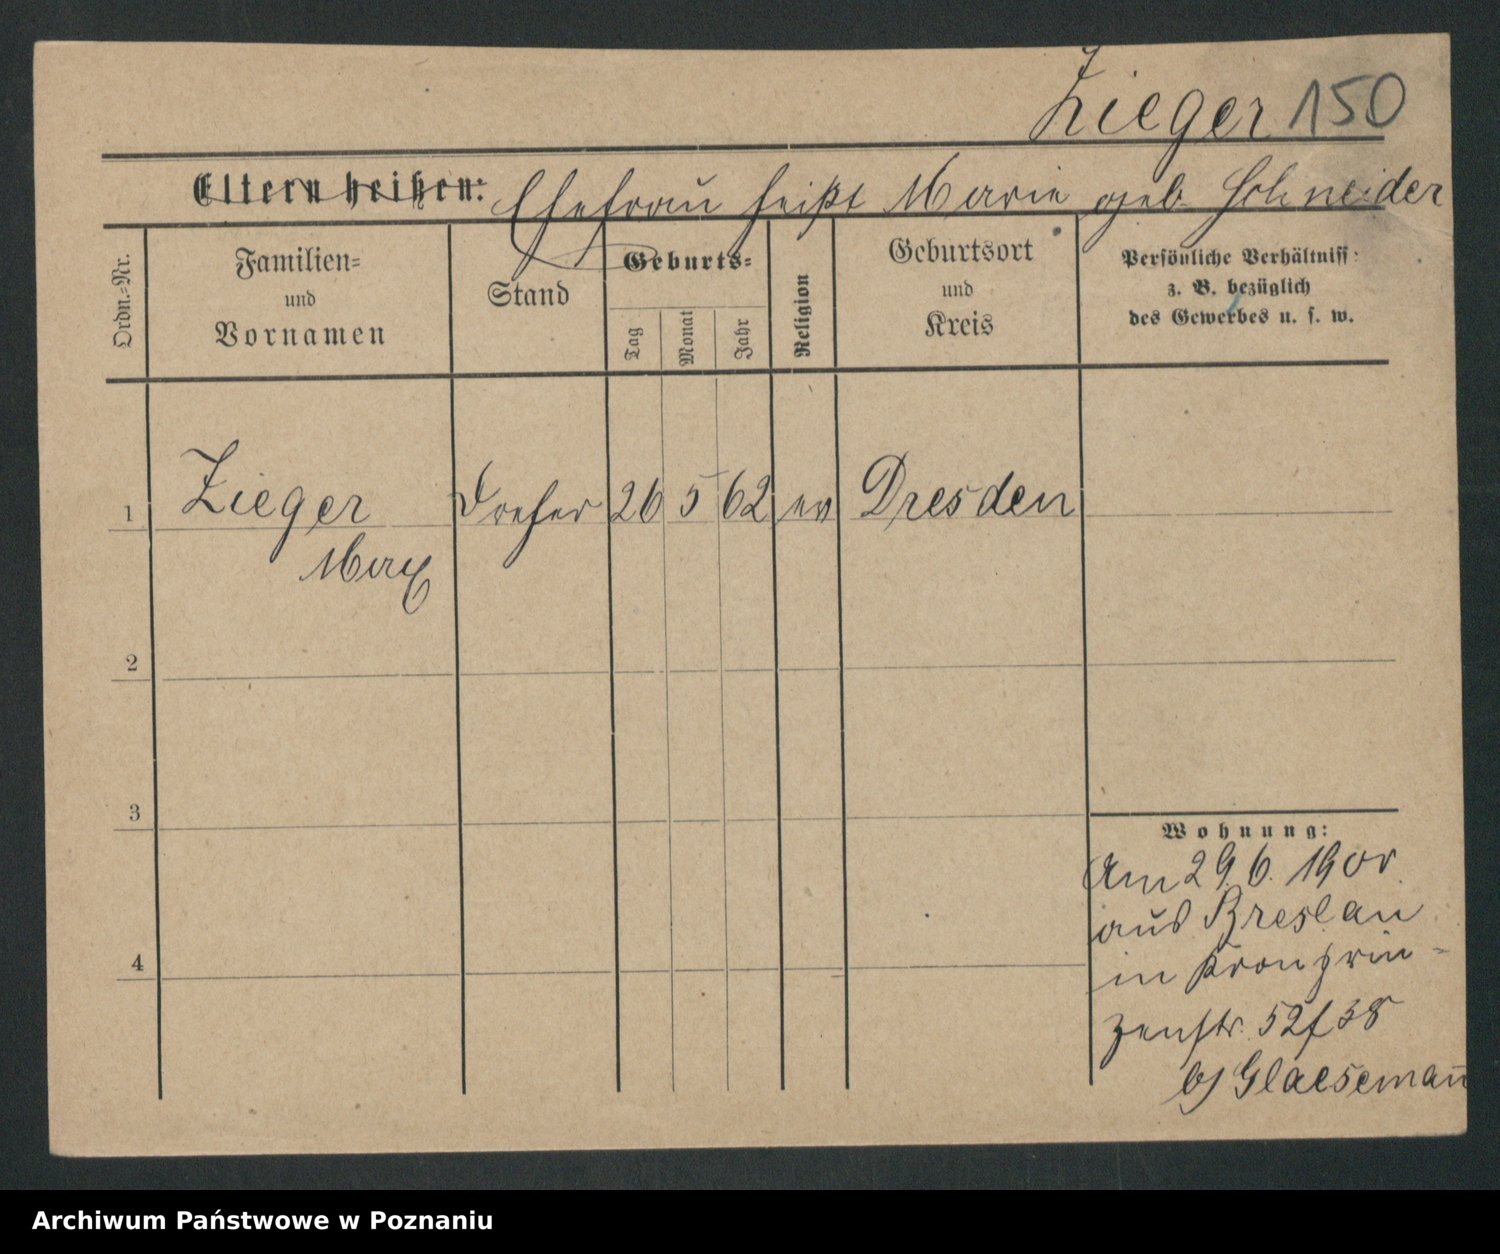 Zieger 150
Eltern heißen: Ehefrau heißt Marie geb. Schneider
Ordn.-Nr.
Familien-
und
Vornamen
Stand
Geburts-
Tag
Monat
Jahr
Religion
Geburtsort
und
Kreis
Persönliche Verhältniss:
z. B. bezüglich
des Gewerbes u. s. w.
1 Zieger Dreher 26 5 62 ev Dresden
Max
2
3
4
Wohnung:
Am 29. 6. 1900
aus Breslau
in Kronprin-
zenstr. 52f 38
b/ Glaeseman̄
Archiwum Państwowe w Poznaniu